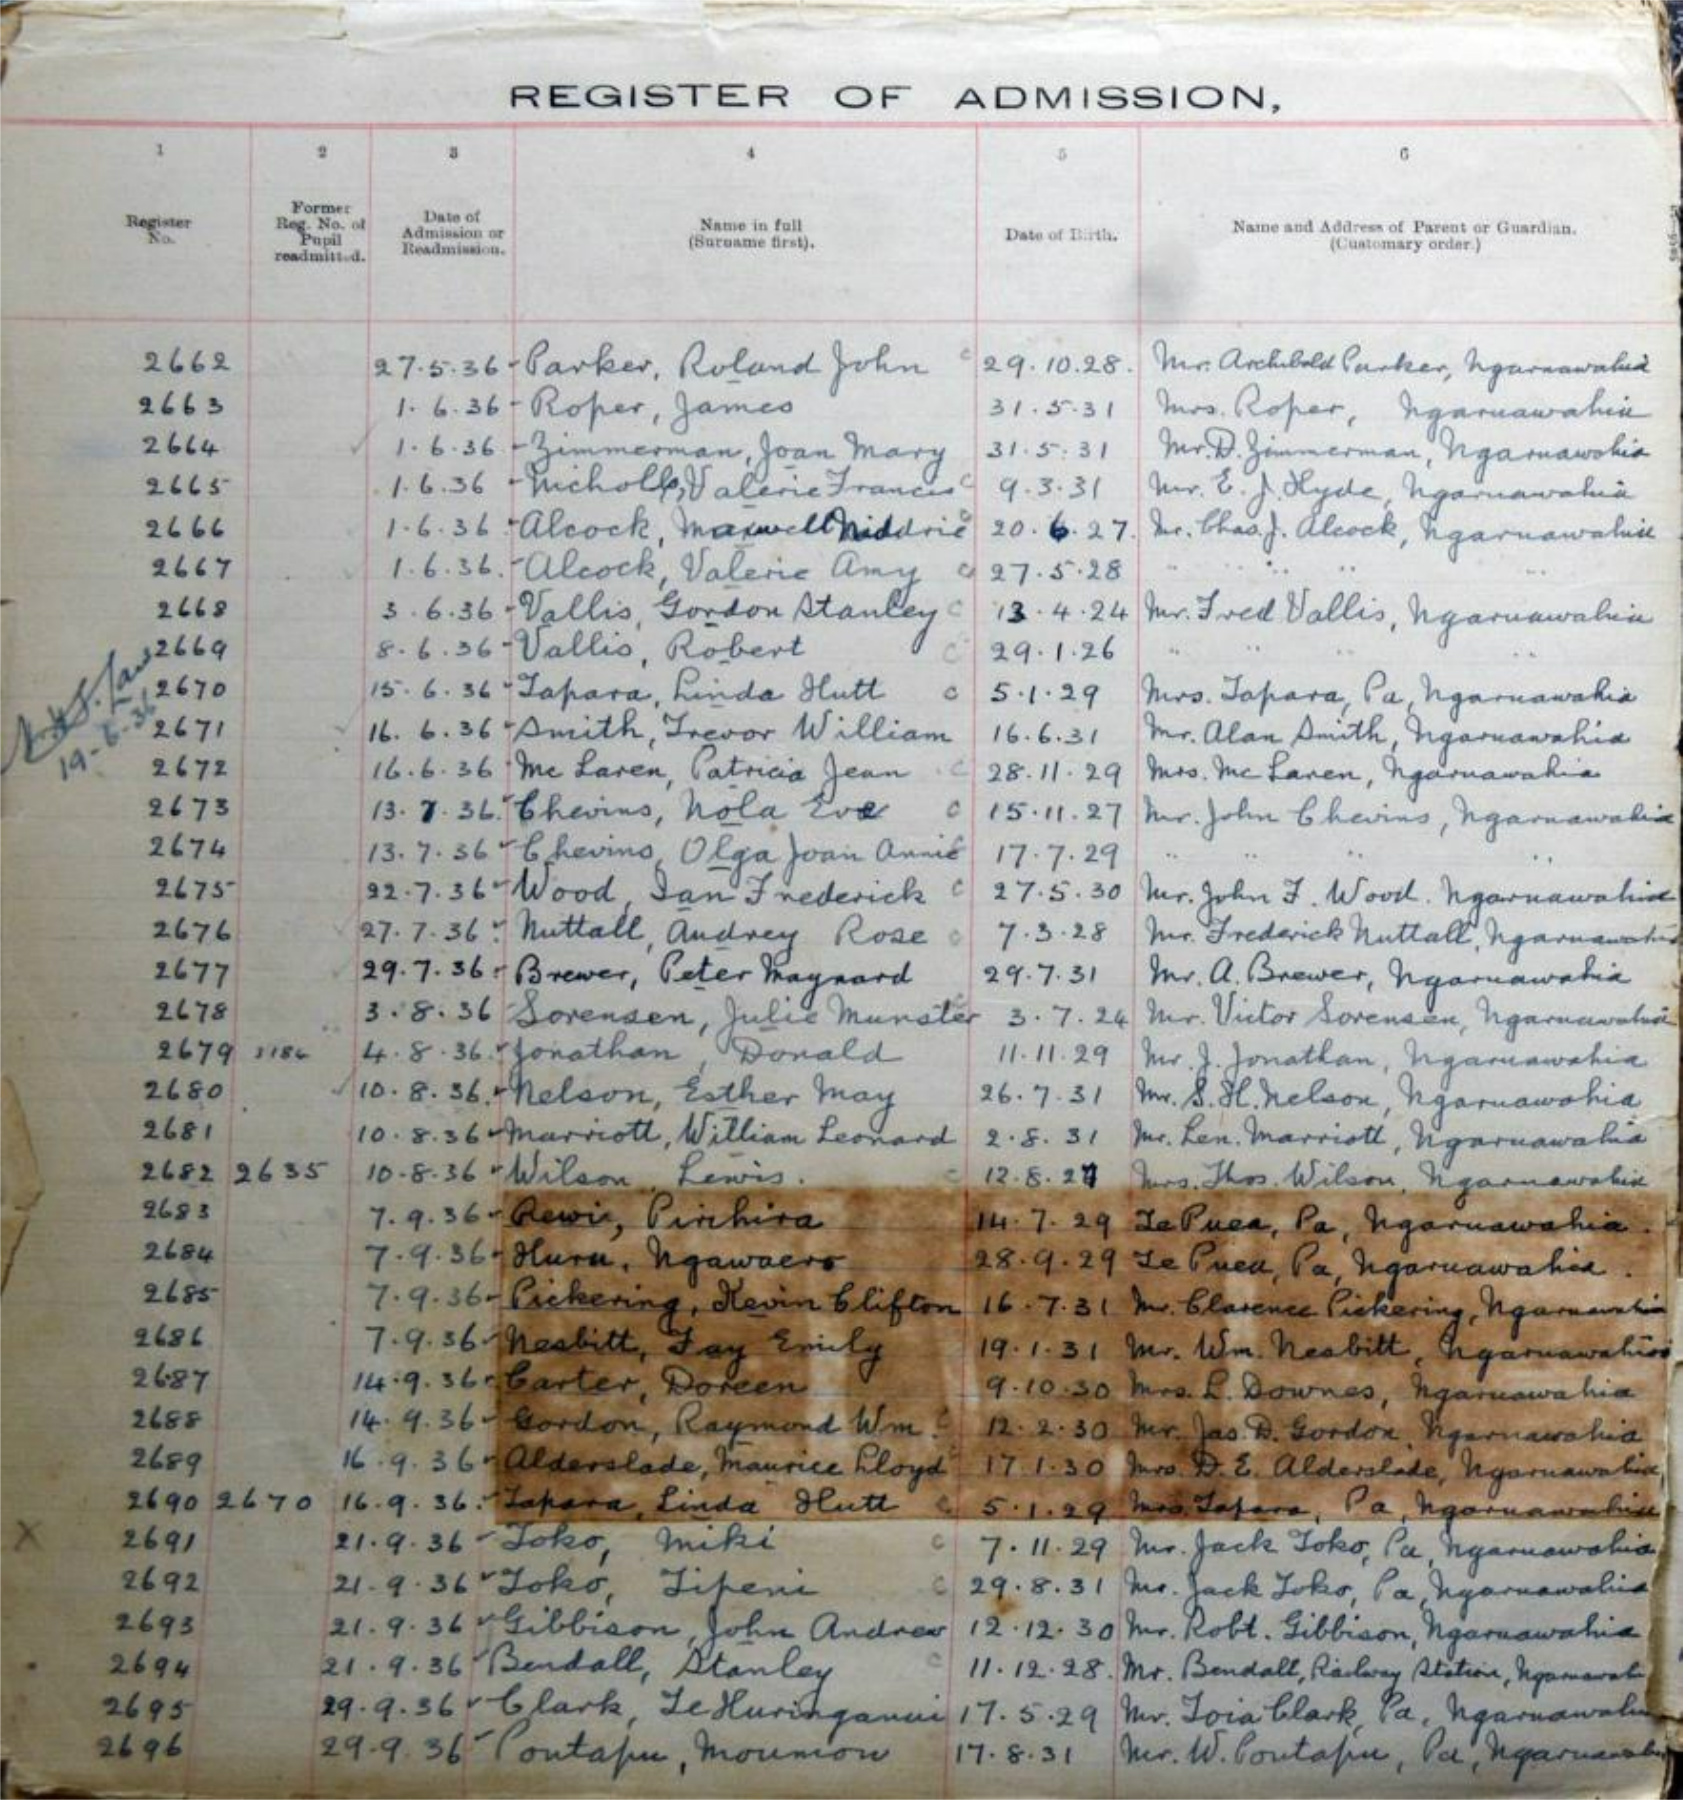 REGISTER OF ADMISSION,
1 2 3 4 5 6
Register No. Former Reg. No. of Pupil readmitted. Date of Admission or Readmission. Name in full (Surname first). Date of Birth. Name and Address of Parent or Guardian. (Customary order.)
2662 27.5.36 Parker, Roland John c 29.10.28. Mr. Archibald Parker, Ngaruawahia
2663 1.6.36 Roper, James 31.5.31 Mrs. Roper, Ngaruawahia
2664 1.6.36 Zimmerman, Joan Mary 31.5.31 Mr. D. Zimmerman, Ngaruawahia
2665 1.6.36 Nicholls, Valerie Frances c 9.3.31 Mr. E. J. Hyde, Ngaruawahia
2666 1.6.36 Alcock, Maxwell Niddrie c 20.6.27. Mr. Chas. J. Alcock, Ngaruawahia
2667 1.6.36. Alcock, Valerie Amy c 27.5.28 " " " "
2668 3.6.36 Vallis, Gordon Stanley c 13.4.24 Mr. Fred Vallis, Ngaruawahia
2669 8.6.36 Vallis, Robert c 29.1.26 " " " "
2670 15.6.36 Tapara, Linda Hutt c 5.1.29 Mrs. Tapara, Pa, Ngaruawahia
19-6-36
2671 16.6.36 Smith, Trevor William 16.6.31 Mr. Alan Smith, Ngaruawahia
2672 16.6.36 Mc Laren, Patricia Jean c 28.11.29 Mrs. Mc Laren, Ngaruawahia
2673 13.7.36. Chevins, Nola Eve c 15.11.27 Mr. John Chevins, Ngaruawahia
2674 13.7.36 Chevins, Olga Joan Annie c 17.7.29 " " " "
2675 22.7.36 Wood, Ian Frederick c 27.5.30 Mr. John F. Wood. Ngaruawahia
2676 27.7.36. Nuttall, Audrey Rose c 7.3.28 Mr. Frederick Nuttall, Ngaruawahia
2677 29.7.36. Brewer, Peter Maynard 29.7.31 Mr. A. Brewer, Ngaruawahia
2678 3.8.36 Sorensen, Julie Munster c 3.7.24 Mr. Victor Sorensen, Ngaruawahia
2679 4.8.36. Jonathan, Donald 11.11.29 Mr. J. Jonathan, Ngaruawahia
2680 10.8.36. Nelson, Esther May 26.7.31 Mr. S. H. Nelson, Ngaruawahia
2681 10.8.36 Marriott, William Leonard 2.8.31 Mr. Len. Marriott, Ngaruawahia
2682 2635 10.8.36 Wilson, Lewis. c 12.8.27 Mrs. Thos. Wilson, Ngaruawahia
2683 7.9.36 Rewi, Pirihira 14.7.29 Te Puea, Pa, Ngaruawahia.
2684 7.9.36 Huru, Ngawaero 28.9.29 Te Puea, Pa, Ngaruawahia.
2685 7.9.36 Pickering, Kevin Clifton 16.7.31 Mr. Clarence Pickering, Ngaruawahia
2686 7.9.36 Nesbitt, Fay Emily 19.1.31 Mr. Wm. Nesbitt, Ngaruawahia
2687 14.9.36 Carter, Doreen 9.10.30 Mrs. L. Downes, Ngaruawahia
2688 14.9.36 Gordon, Raymond Wm. c 12.2.30 Mr. Jas. D. Gordon, Ngaruawahia
2689 16.9.36 Alderslade, Maurice Lloyd c 17.1.30 Mrs. D. E. Alderslade, Ngaruawahia
2690 2670 16.9.36. Tapara, Linda Hutt c 5.1.29 Mrs. Tapara, Pa, Ngaruawahia
X 2691 21.9.36 Toko, Miki c 7.11.29 Mr. Jack Toko, Pa, Ngaruawahia
2692 21.9.36 Toko, Tipeni c 29.8.31 Mr. Jack Toko, Pa, Ngaruawahia
2693 21.9.36 Gibbison, John Andrew 12.12.30 Mr. Robt. Gibbison, Ngaruawahia
2694 21.9.36 Bendall, Stanley c 11.12.28. Mr. Bendall, Railway Station, Ngaruawah
2695 29.9.36 Clark, Te Huringanui 17.5.29 Mr. Toia Clark, Pa, Ngaruawahia
2696 29.9.36 Poutapu, Moumou 17.8.31 Mr. W. Poutapu, Pa, Ngaruawahia